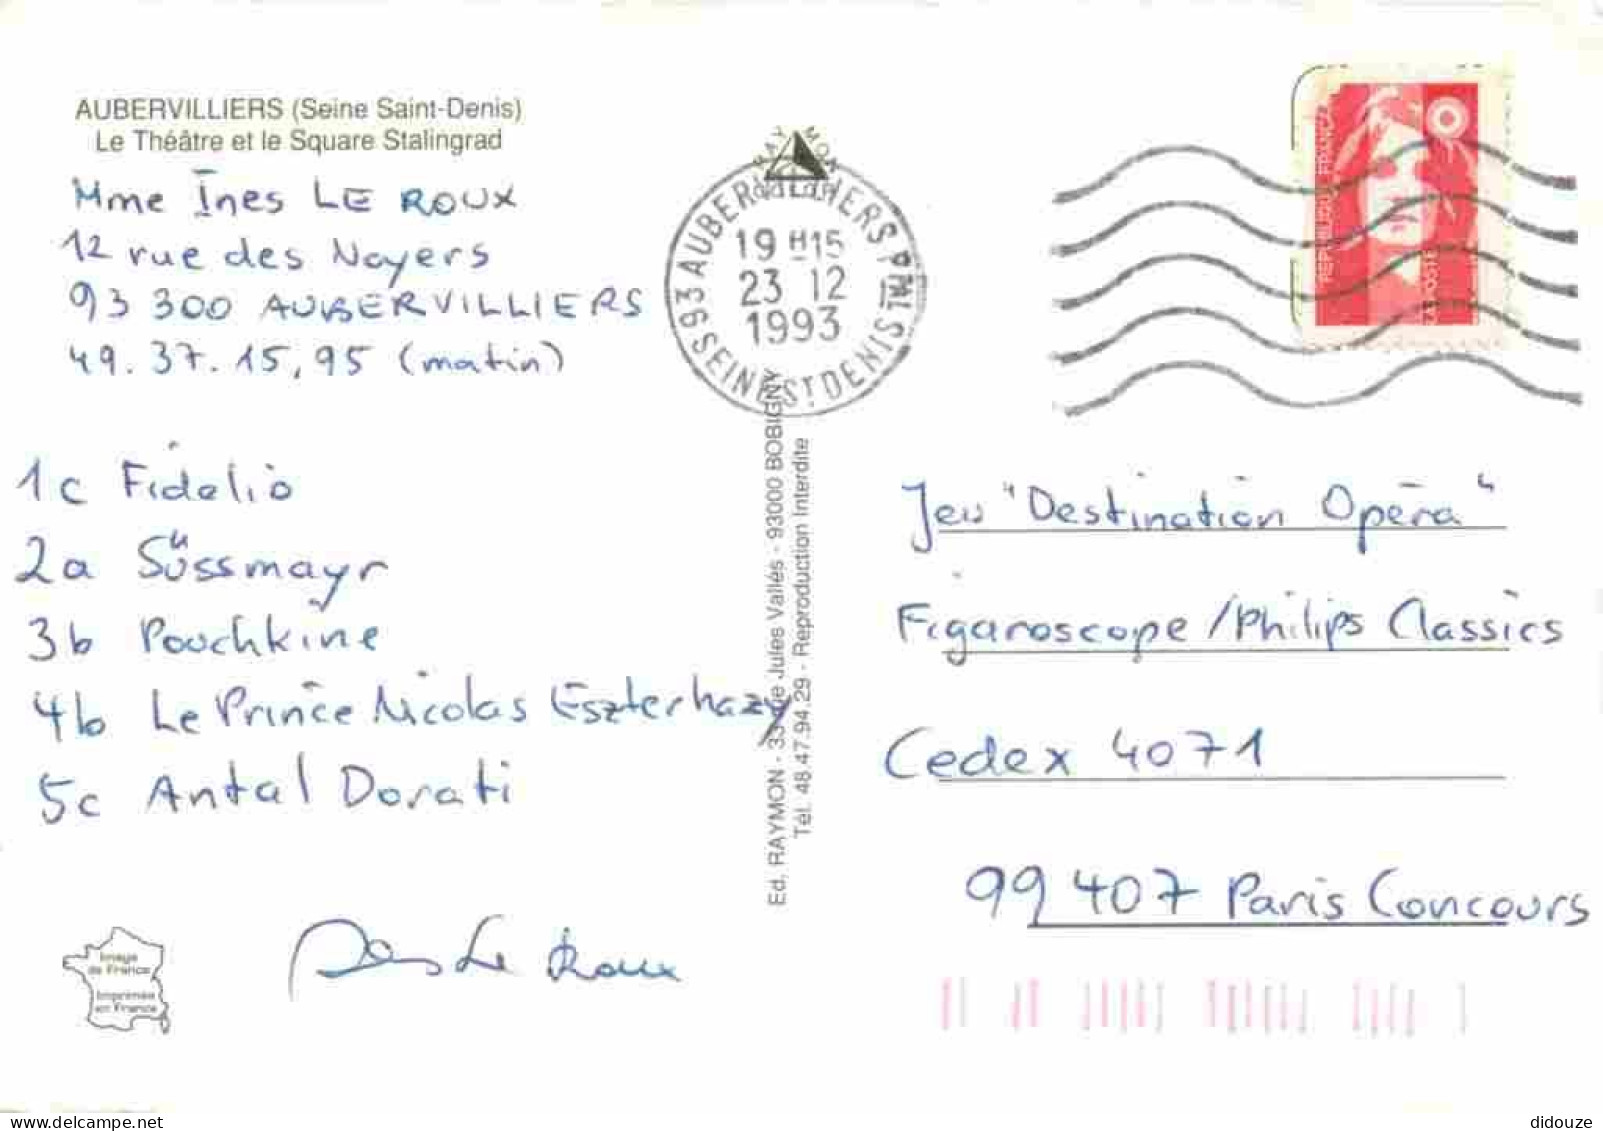 AUBERVILLIERS (Seine Saint-Denis)
Le Théâtre et le Square Stalingrad
Mme Ines LE ROUX
12 rue des Noyers
93 300 AUBERVILLIERS
49. 37. 15, 95 (matin)
1c Fidelio
2a Süssmayr
3b Pouchkine
4b Le Prince Nicolas Eszterhazy
5c Antal Dorati
Ines Le Roux
Image
de France
Imprimée
en France
RAYMON
93 AUBERVILLIERS PPAL
19 H15
23 12
1993
SEINE ST DENIS
Ed. RAYMON - 33 rue Jules Vallès - 93000 BOBIGNY
Tél. 48.47.94.29 - Reproduction Interdite
REPUBLIQUE FRANÇAISE
LA POSTE
Jeu "Destination Opéra"
Figaroscope/Philips Classics
Cedex 4071
99 407 Paris Concours
didouze